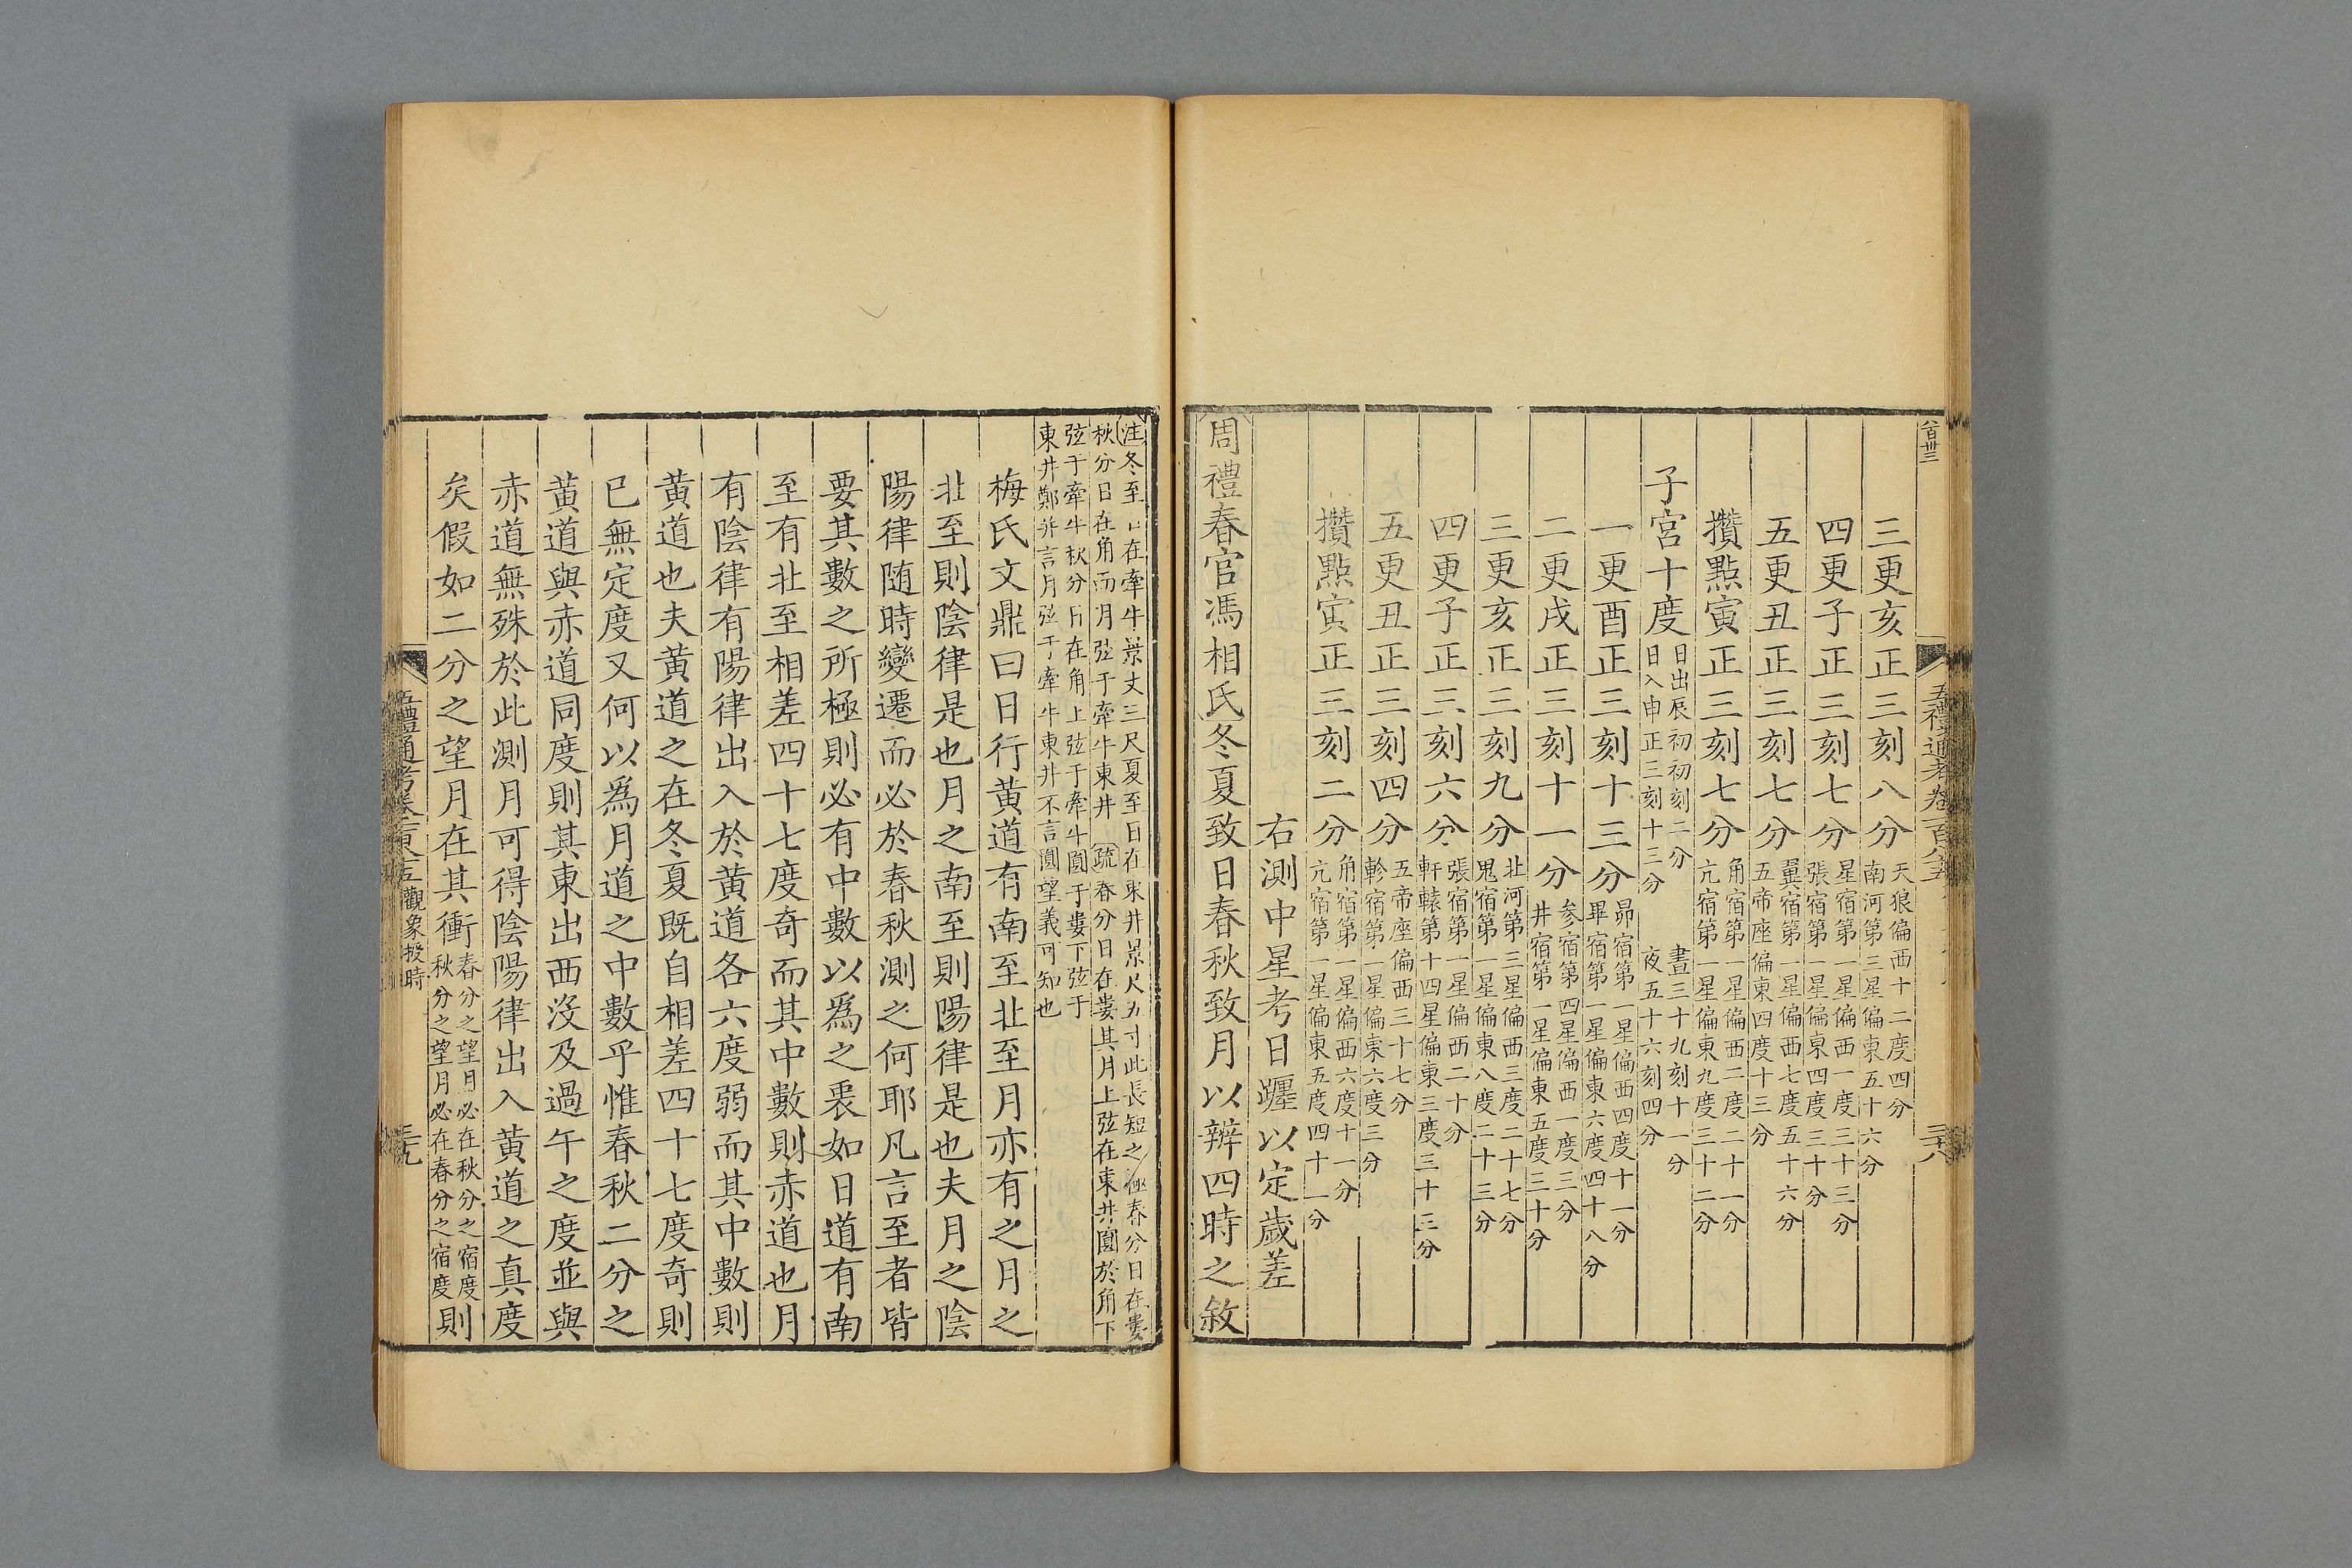 八百卌三
五禮通考卷一百八十五
三十八
三更亥正三刻八分 天狼偏西十二度四分
南河第三星偏東五十六分
四更子正三刻七分 星宿第一星偏西一度三十三分
張宿第一星偏東四度三十分
五更丑正三刻七分 翼宿第一星偏西七度五十六分
五帝座偏東四度十三分
攢點寅正三刻七分 角宿第一星偏西二度二十一分
亢宿第一星偏東九度三十二分
子宮十度 日出辰初初刻二分 晝三十九刻十一分
日入申正三刻十三分 夜五十六刻四分
一更酉正三刻十三分 昴宿第一星偏西四度十一分
畢宿第一星偏東六度四十八分
二更戌正三刻十一分 参宿第四星偏西一度三分
井宿第一星偏東五度三十分
三更亥正三刻九分 北河第三星偏西三度二十七分
鬼宿第一星偏東八度二十三分
四更子正三刻六分 張宿第一星偏西二十分
軒轅第十四星偏東三度三十三分
五更丑正三刻四分 五帝座偏西三十七分
軫宿第一星偏東六度三分
攢點寅正三刻二分 角宿第一星偏西六度十一分
亢宿第一星偏東五度四十一分
右測中星考日躔以定歲差
周禮春官馮相氏冬夏致日春秋致月以辨四時之敘
注冬至日在牽牛景丈三尺夏至日在東井景尺五寸此長短之極春分日在婁
秋分日在角而月弦于牽牛東井 疏春分日在婁其月上弦在東井圓於角下
弦于牽牛秋分日在角上弦于牽牛圓于婁下弦于
東井鄭并言月弦于牽牛東井不言圓望義可知也
梅氏文鼎曰日行黃道有南至北至月亦有之月之
北至則陰律是也月之南至則陽律是也夫月之陰
陽律隨時變遷而必於春秋測之何耶凡言至者皆
要其數之所極則必有中數以爲之裏如日道有南
至有北至相差四十七度奇而其中數則赤道也月
有陰律有陽律出入於黃道各六度弱而其中數則
黃道也夫黃道之在冬夏既自相差四十七度奇則
已無定度又何以爲月道之中數乎惟春秋二分之
黃道與赤道同度則其東出西沒及過午之度並與
赤道無殊於此測月可得陰陽律出入黃道之真度
矣假如二分之望月在其衝 春分之望月必在秋分之宿度
秋分之望月必在春分之宿度 則
五禮通考卷一百八十五 觀象授時
三十九